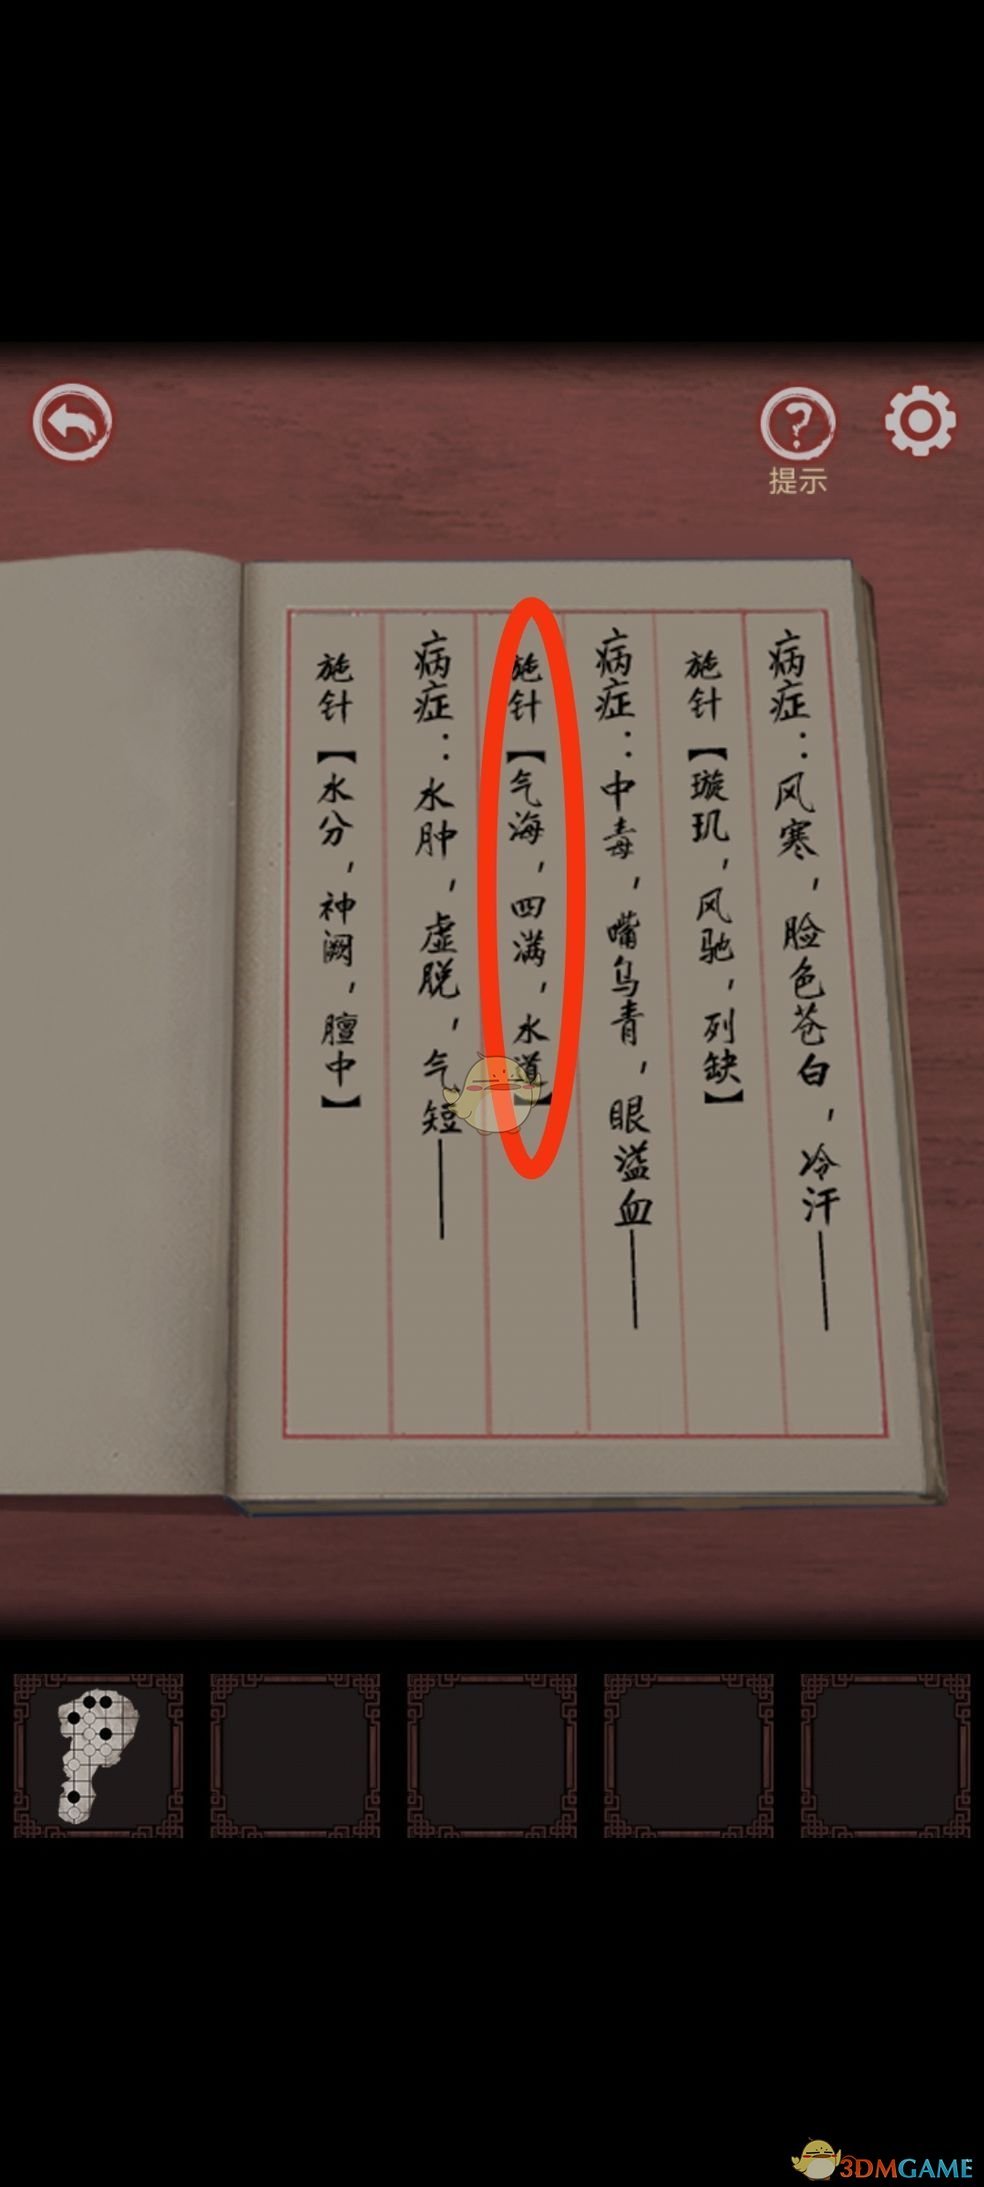 提示
病症：风寒，脸色苍白，冷汗——
施针【璇玑，风驰，列缺】
病症：中毒，嘴乌青，眼溢血——
施针【气海，四满，水道】
病症：水肿，虚脱，气短——
施针【水分，神阙，膻中】
3DMGAME